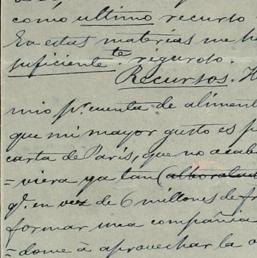 como ultimo recurso
En estas materias me h
suficiente te riguroso.
Recursos. H
mio pr. cuenta de aliment
que mi mayor gusto es p
carta de Paris, que no acab
=viera ya tan (alborotad
q. en vez de 6 millones de fr
formar una compañia
=dome á aprovechar la o